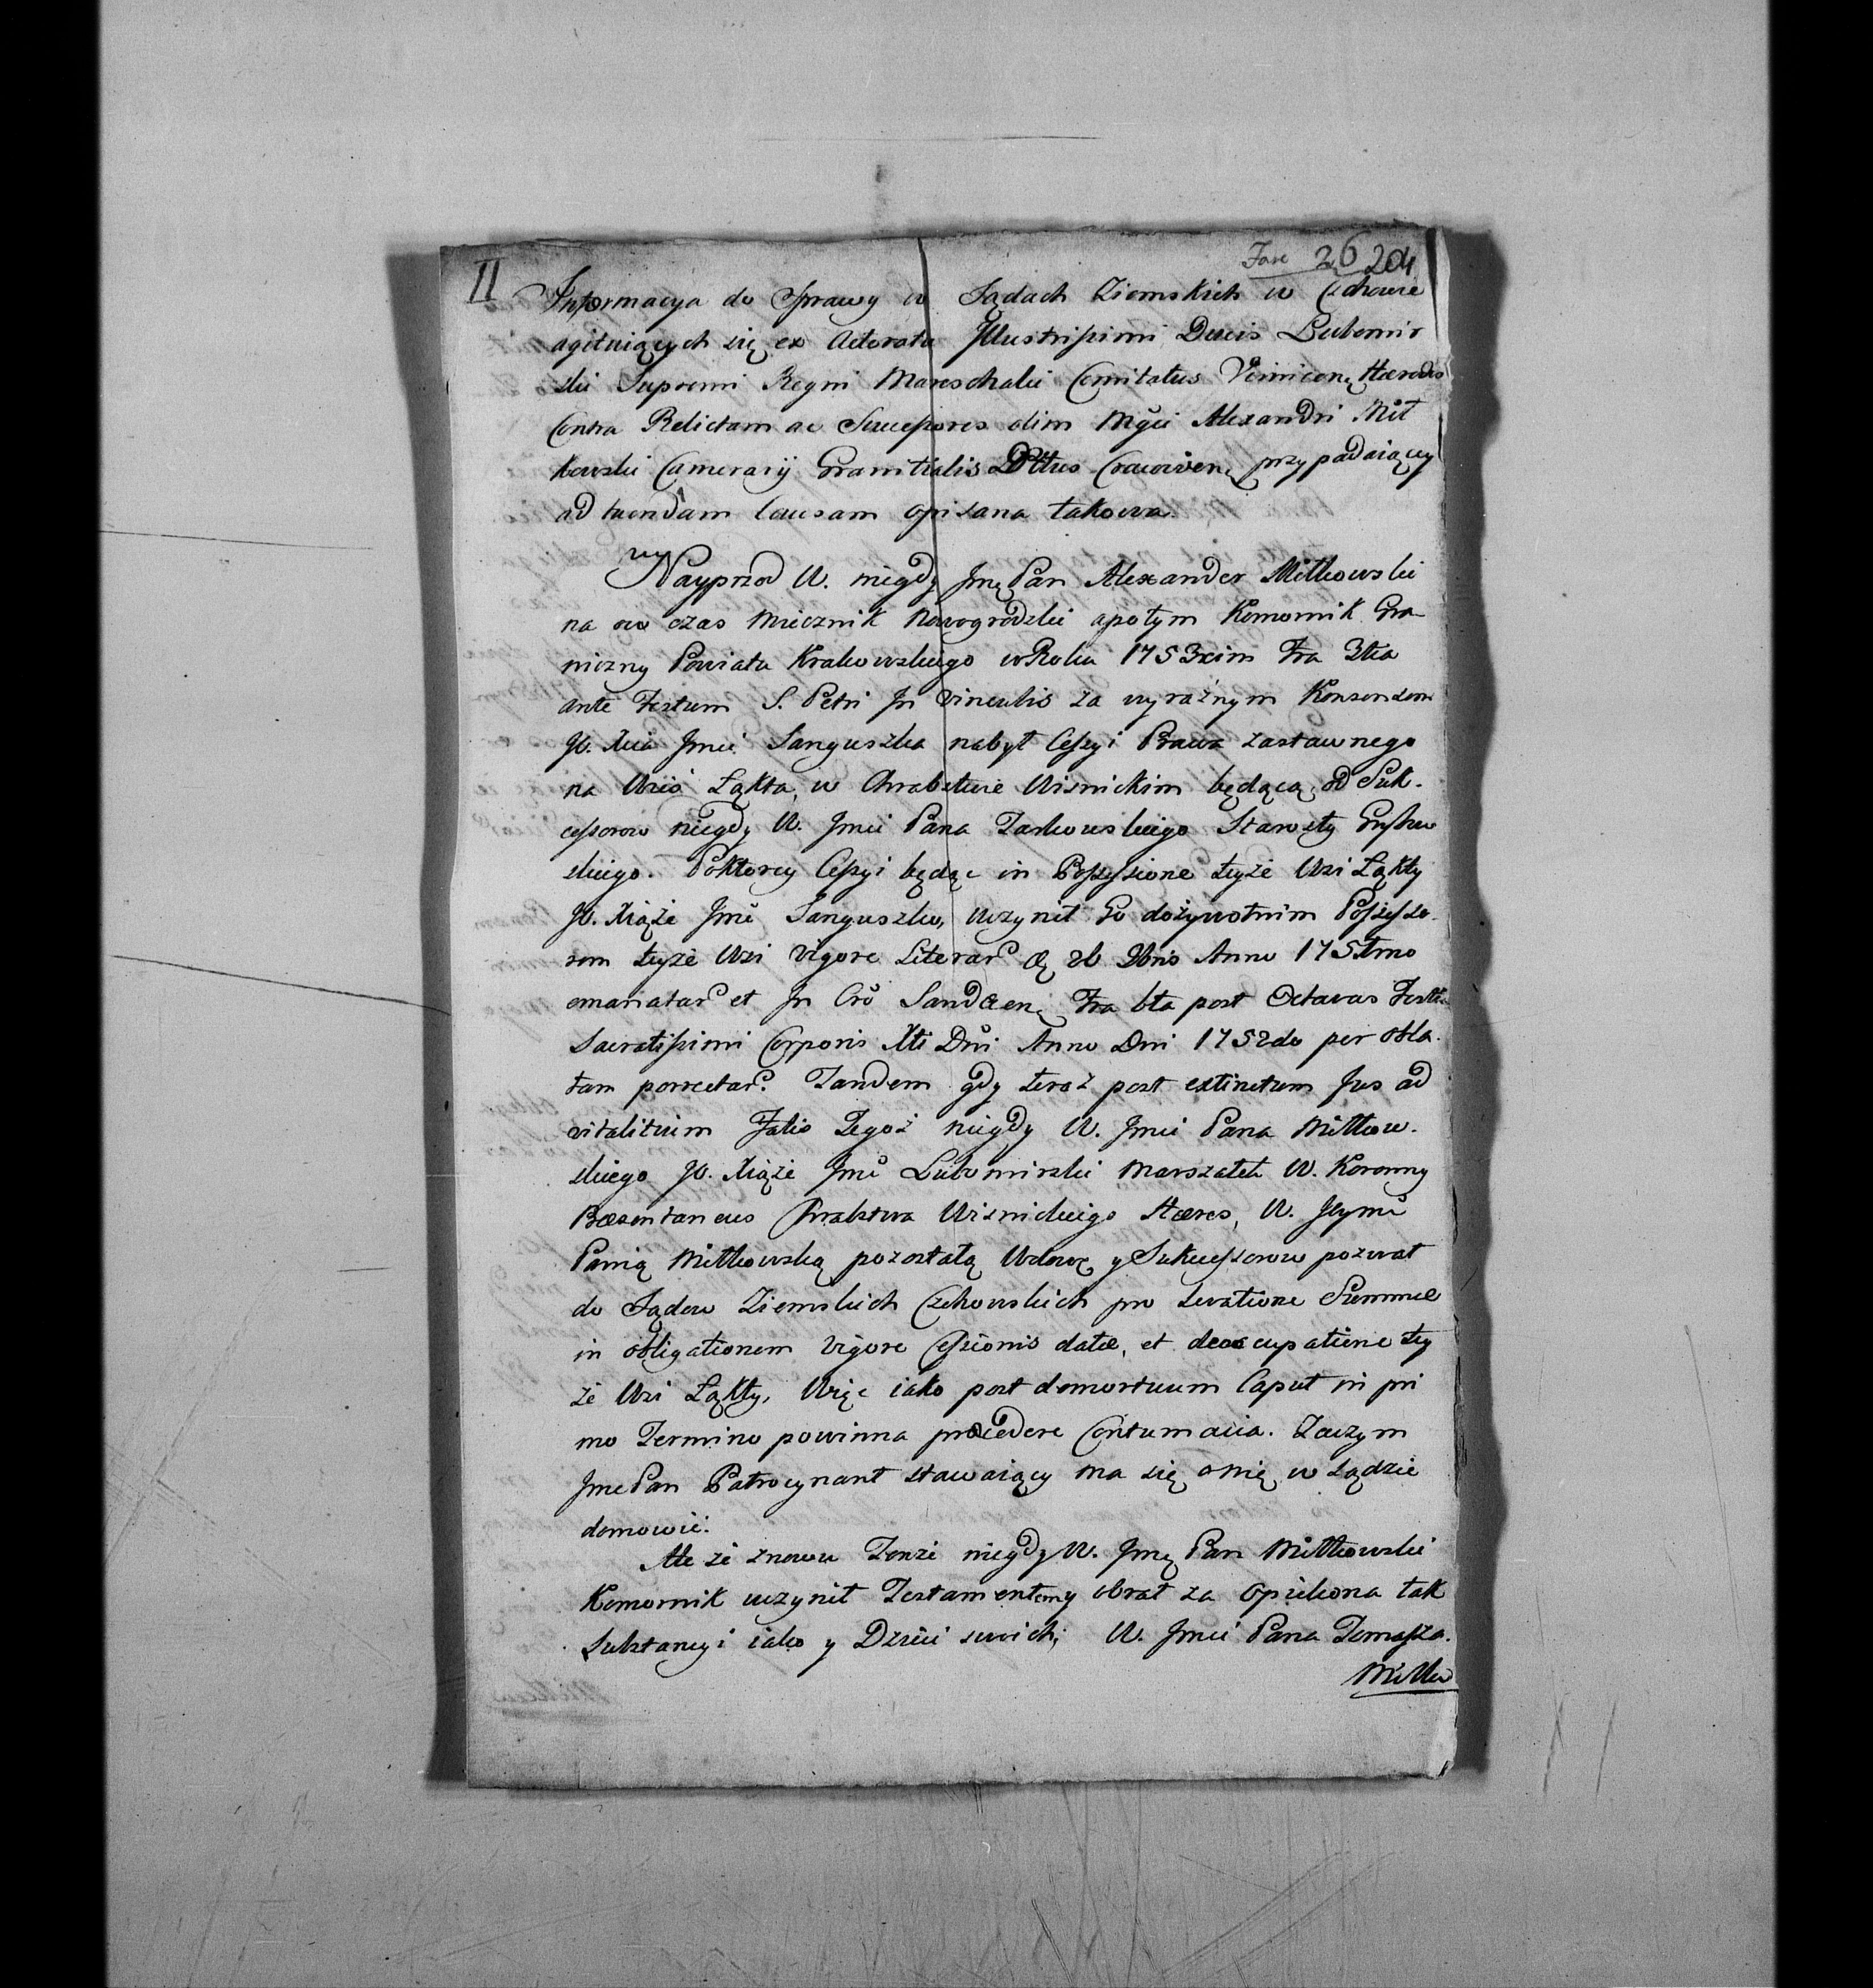 II
Fasc 26 204
Informacya do Sprawy w Sądach Ziemskich w Czchowie
agituiących się ex Actoratu Jllustrissimi Ducis Lubomir
ski Supremi Regni Mareschalci Comitatus Visnicen: Hæredis
Contra Relictam ac Successores olim Mgci Alexandri Mit
kowski Camerarij Granitialis Dttus Cracovien: przypadaiący
ad tuendam Causam opisana takowa.
Nayprzod W. niegdy Jmę Pan Alexander Mitkowski
na ow czas Miecznik Nowogrodzki apotym Komornik Gra
niczny Powiatu Krakowskiego w Roku 1753cim Fra 3tia
ante Festum S. Petri Jn vinculis za wyraźnym Konsensem
JO. Xcia Jmci Sanguszka nabył Cessyi Prawa zastawnego
na Wsią Łąkta, w Chrabstwie Wisnickim będącą od Suk-
cessorow niegdy W. Jmci Pana Jaskowskiego Starosty
skiego. Poktorey Cessyi będąc in Possessione teyże Wsi Łąkty
JO. Xiąże Jmć Sanguszko, uczynił Go dożywotnim Possesso-
rem teyże Wsi vigore Literar: 9bris Anno 175
emanatar: et Jn Cro Sandecen: Fra 6ta post Octavas Festi
Sacratissimi Corporis Xti Dni Anno Dni 1752do per obla-
tam porrectar: Tandem gdy teraz post extinctum Jus ad
vitalitium Fatis Tegoż niegdy W. Jmci Pana Mitkow-
skiego JO. Xiąże Jmć Lubomirski Marszałek W. Koronny
Præsentaneus Hrabstwa Wisnickiego Hæres, W. Jeymć
Panią Mitkowską pozostałą Wdowę y Sukcessorow pozwał
do Sądow Ziemskich Czchowskich pro levatione Summæ
in obligationem vigore Cessionis datæ, et deoccupatione tey
że Wsi Łąkty, Więc iako post demortuum Caput in pri
mo Termino powinna procedere Contumacia. Zaczym
Jmc Pan Patrocynant stawaiący ma się onię w sądzie
domowić.
Ale że znowu Tenże niegdy W. Jmę Pan Mitkowski
Komornik uczynił Testament emy obrał za Opiekona tak
Substancyi iako y Dzieci swoich, W. Jmci Pana Tomasza.
Mitko